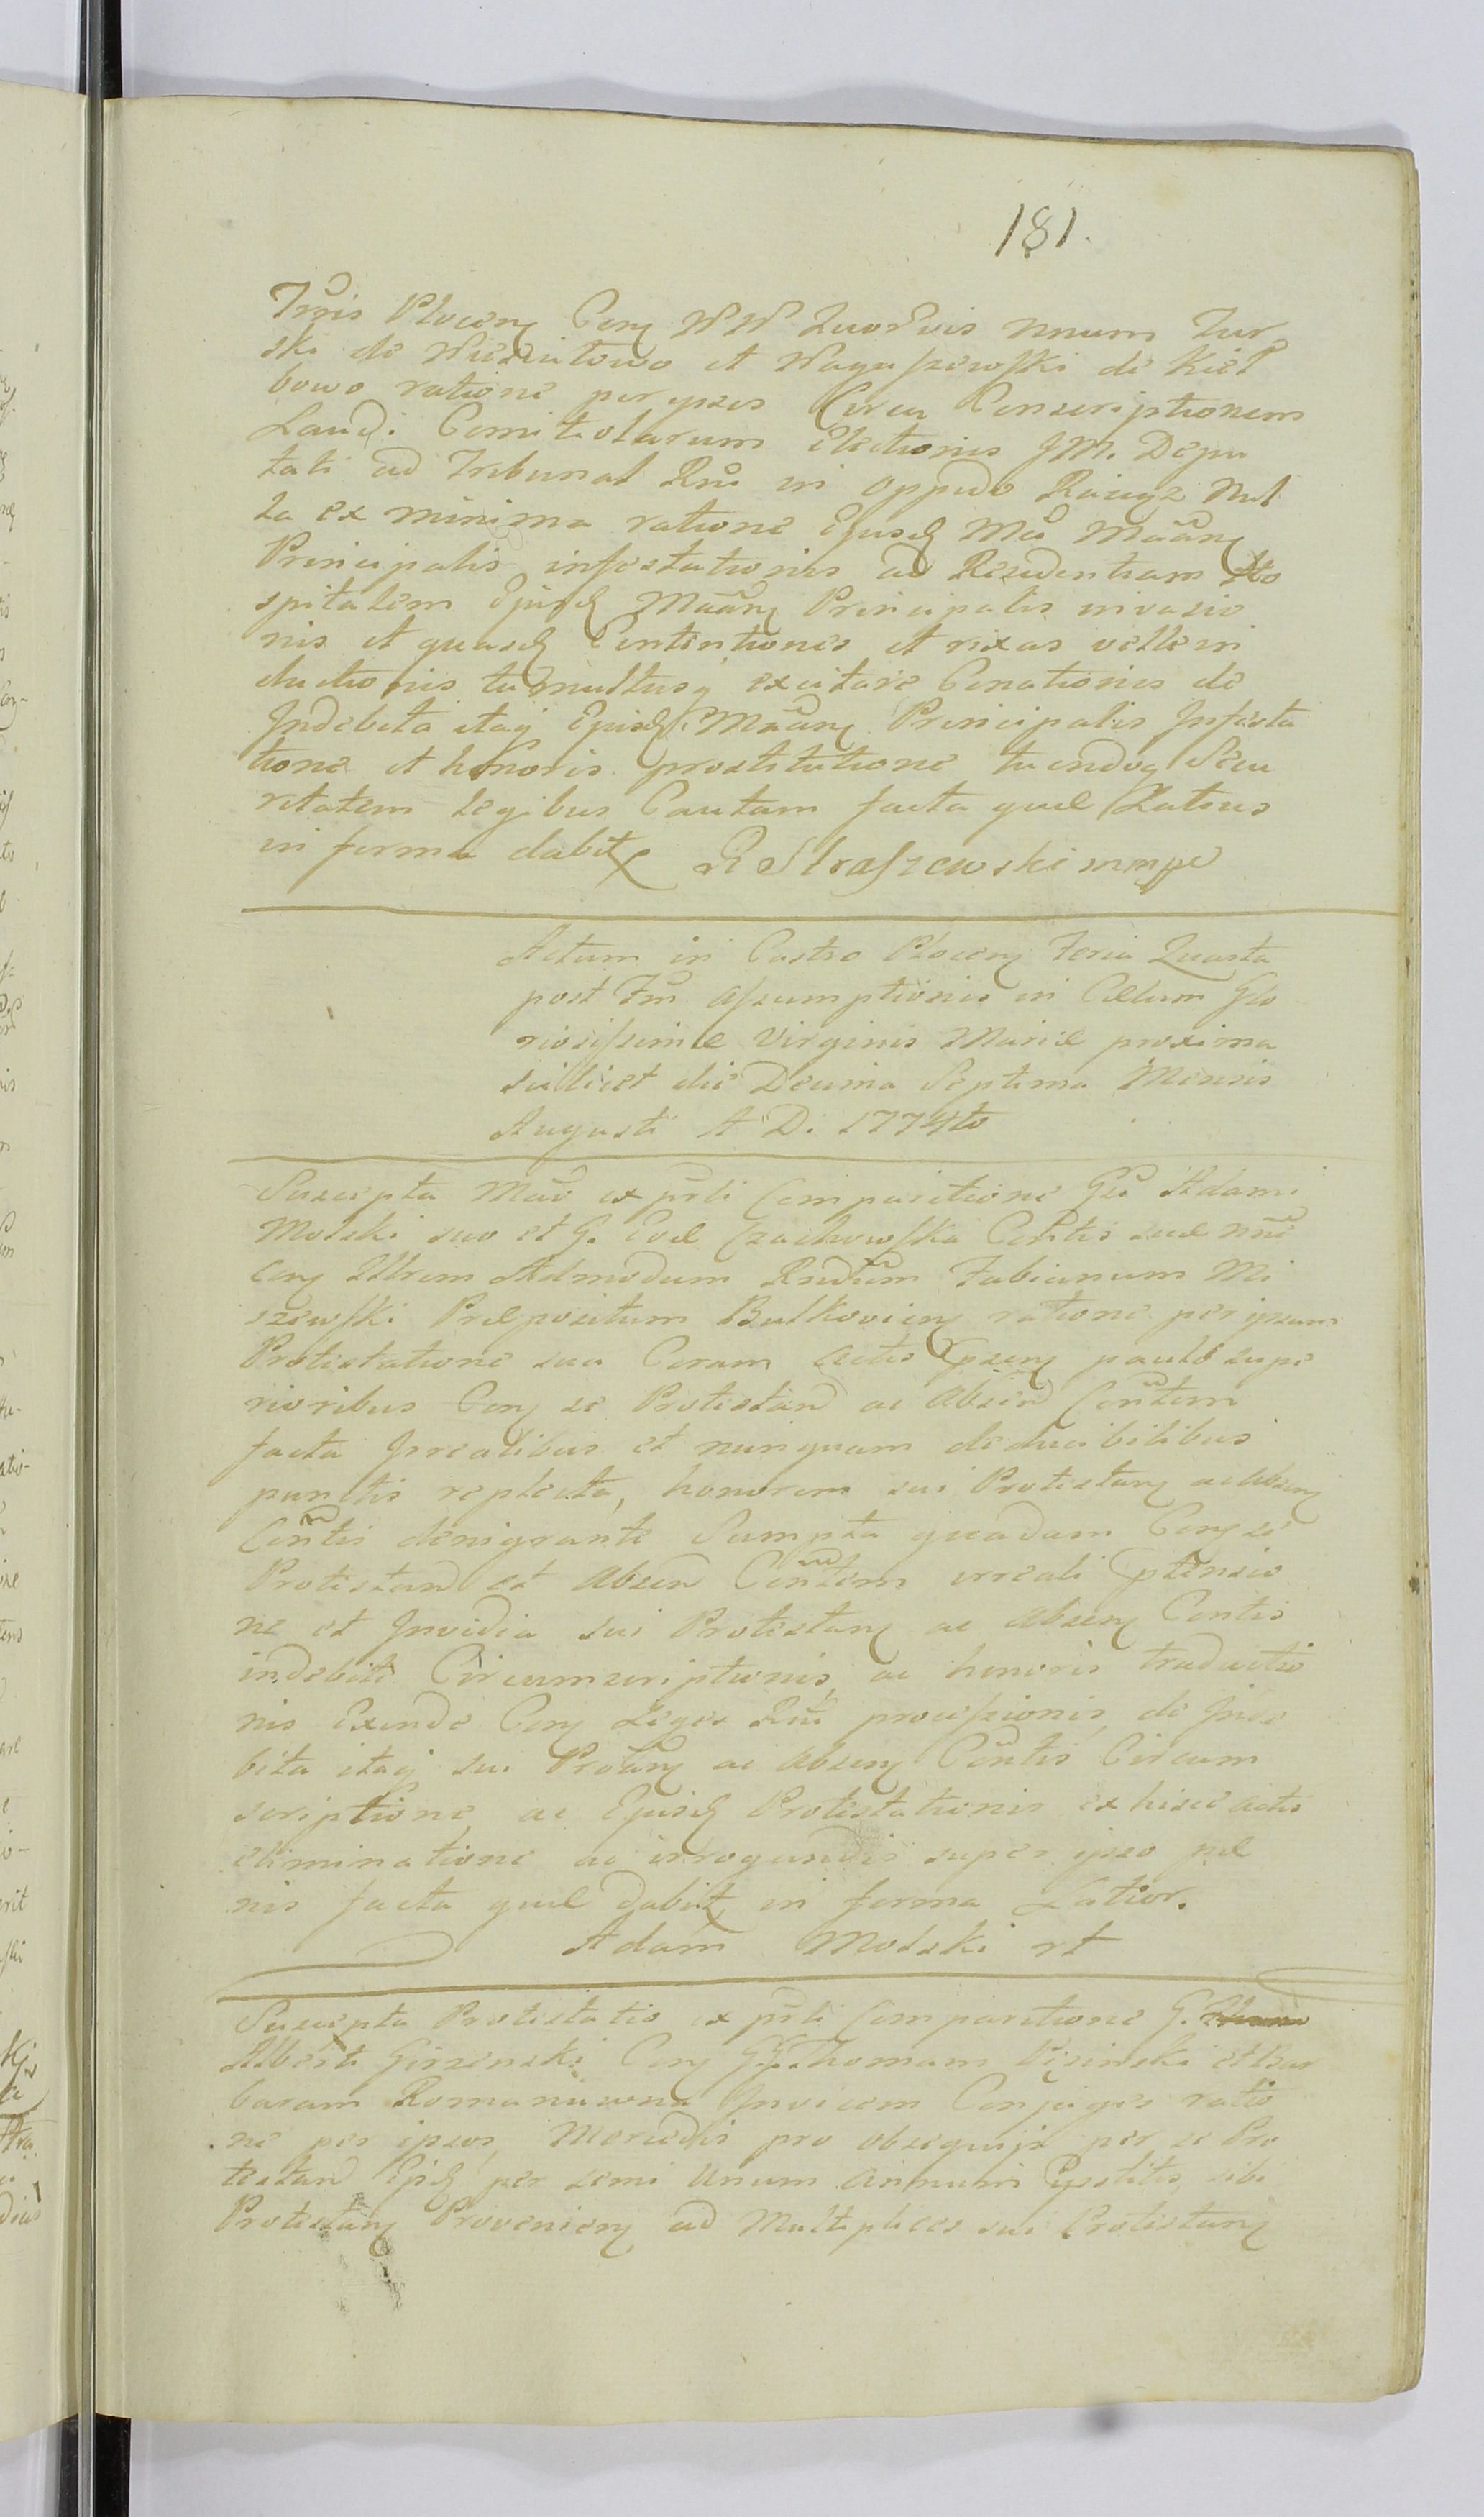 181.
Trris Plocen Con WW Quosvis unum Tur
ski de et Wagaszewski de Kieł
bowo ratione per ipsos Circa Conscriptionem
Laudi Comitiolarum Electionis JM. Depu
tati ad Tribunal Rni in oppido Raiąz Nul
la ex minima ratione Ejusd Mei Maan
Principalis infestationis ad Residentiam Ho
spitalem Ejusd Maan Principalis invasio
nis et quasd Contentiones et rixas velle in
ductionis tumultusq excitare Conationis de
Indebita itaq Ejusd Maan Principalis Infesta
tione et honoris prostitutione tuendoq Secu
ritatem legibus Cautam facta quæ Latius
in forma dabit R Straszewski mmpp
Actum in Castro Plocen Feria Quarta
post Fm Assumptionis in Cælum Glo
riosissimæ Virginis Mariæ proxima
scilicet die Decima Septima Mensis
Augusti A D. 1774to
Suscepta Mao ex prli Comparitione Gsi Adami
Molski suo et G. Evæ Czachowska Contis suæ nne
Con Illrem Admodum Rndum Fabianum Mi
szewski Præpositum Bulkovien ratione per ipsum
Protestatione sua Coram Actis psen paulo supe
rioribus Con se Protestand ac Absen Contem
facta Irrealibus et nunquam deducibilibus
punctis repleta, honorem sui Protestan ac Absen
Contis denigrante Sumpta quadam Con se
Protestand et Absen Contem irreali ptensio
ne et Invidia sui Protestan ac Absen Contis
indebite Circumscriptionis, ac honoris traductio
nis Exinde Con Leges Rni processionis, de Inde
bita itaq sui Protan ac Absen Contis Circum
scriptione ac Ejusd Protestationis ex hisce actis
eliminatione ac irrogandis super ipso pæ
nis facta quæ dabit in forma Latior.
Adam Molski rt
Suscepta Protestatio ex prli Comparitione G.
Alberti Girzenski Con GG. Thomam et Bar
baram Invicem Conjuges ratio
ne per ipsos, Mercedis pro obsequijs per se Pro
testand Ejsd per semi Unum Annum pstitis, sibi
Protestan Provenien ad Multiplices sui Protestan